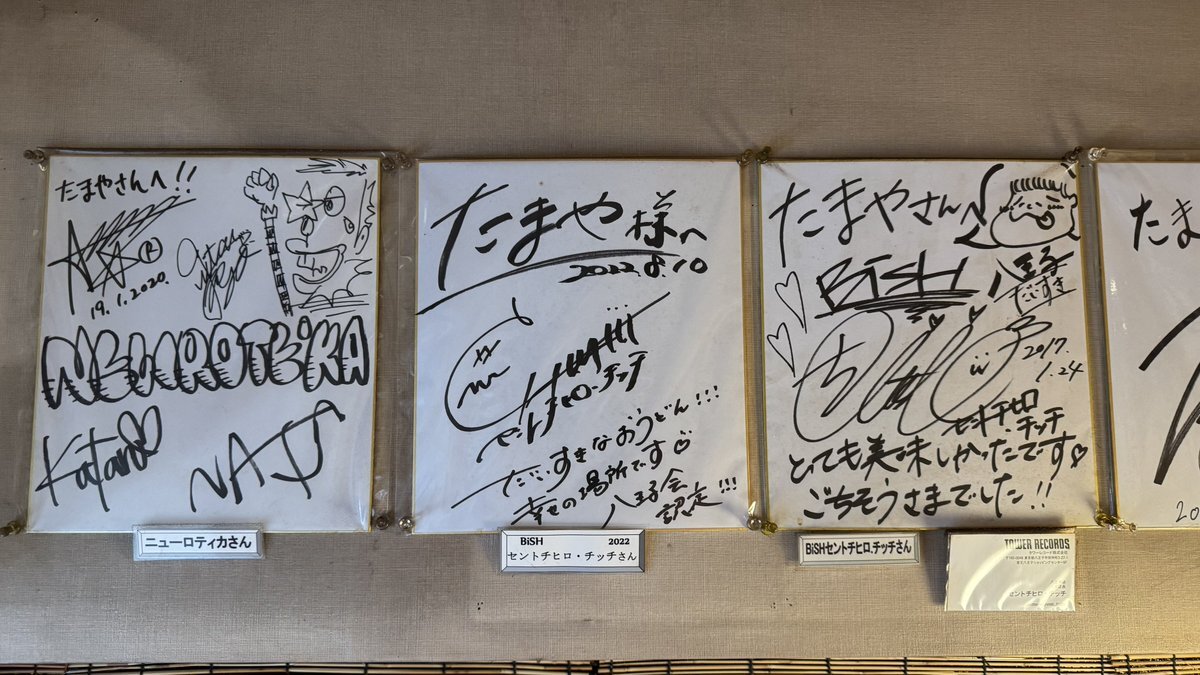 たまやさんへ!!
19.1.2020.
NEWROTEIKA
Kataro
NAJI
ニューロティカさん
たまや様へ
2022.8.10
セントチヒロ・チッチ
だいすきなおうどん!!!
幸せの場所です
八王子会
認定!!!
BiSH 2022
セントチヒロ・チッチさん
たまやさんへ
BiSH
八王子
だいすき
2017.
1.24
セントチヒロ
チッチ
とても美味しかったです
ごちそうさまでした!!
BiSHセントチヒロ.チッチさん
TOWER RECORDS
タワーレコード株式会社
セントチヒロ・チッチ
たま
20